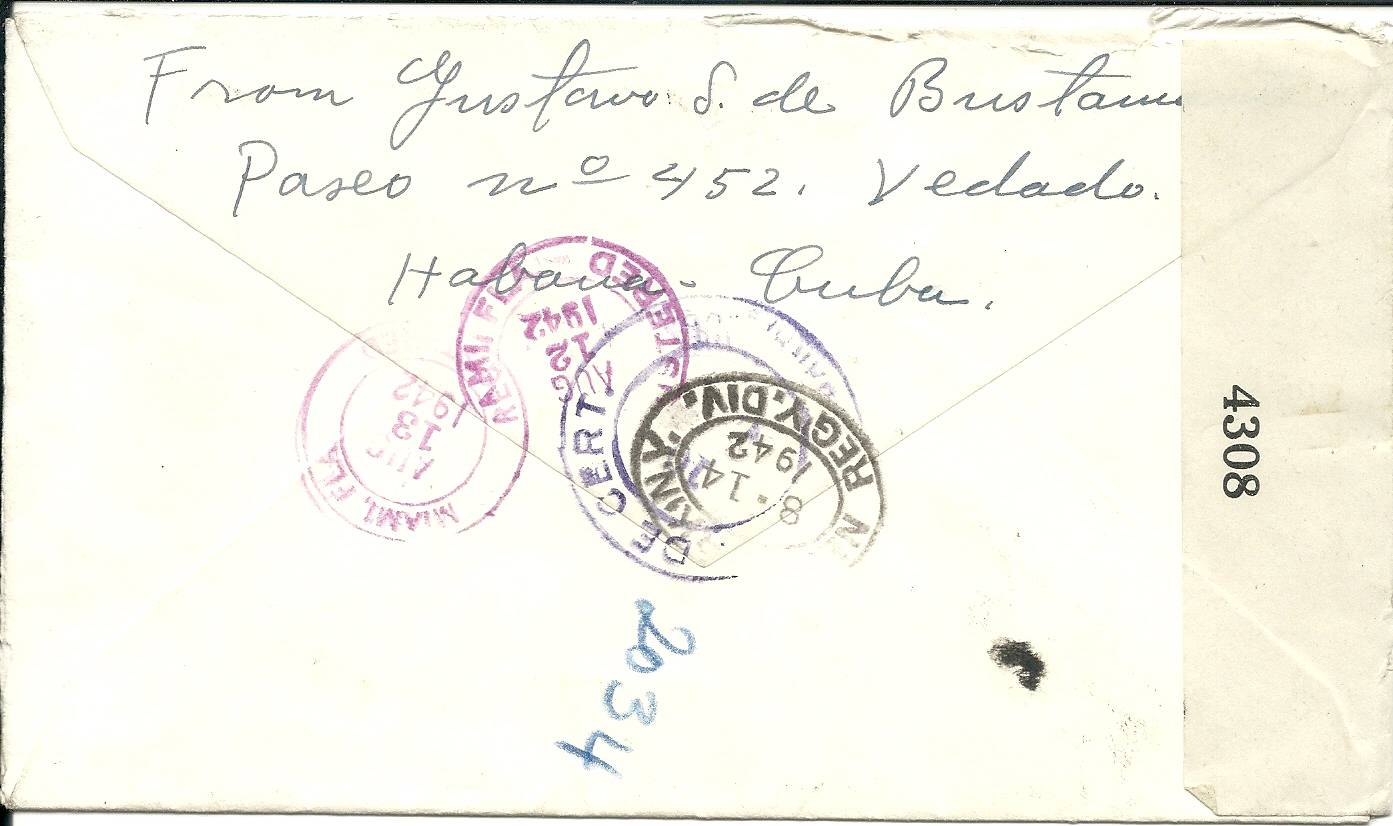 From Gustavo S. de Bustam
Paseo nº 452. Vedado.
Habana - Cuba.
REGISTERED
MIAMI, FLA.
AUG 12
1942
MIAMI, FLA.
AUG 13
1942
DE CERT.
N.Y. REG'Y. DIV.
8-14
1942
2034
4308